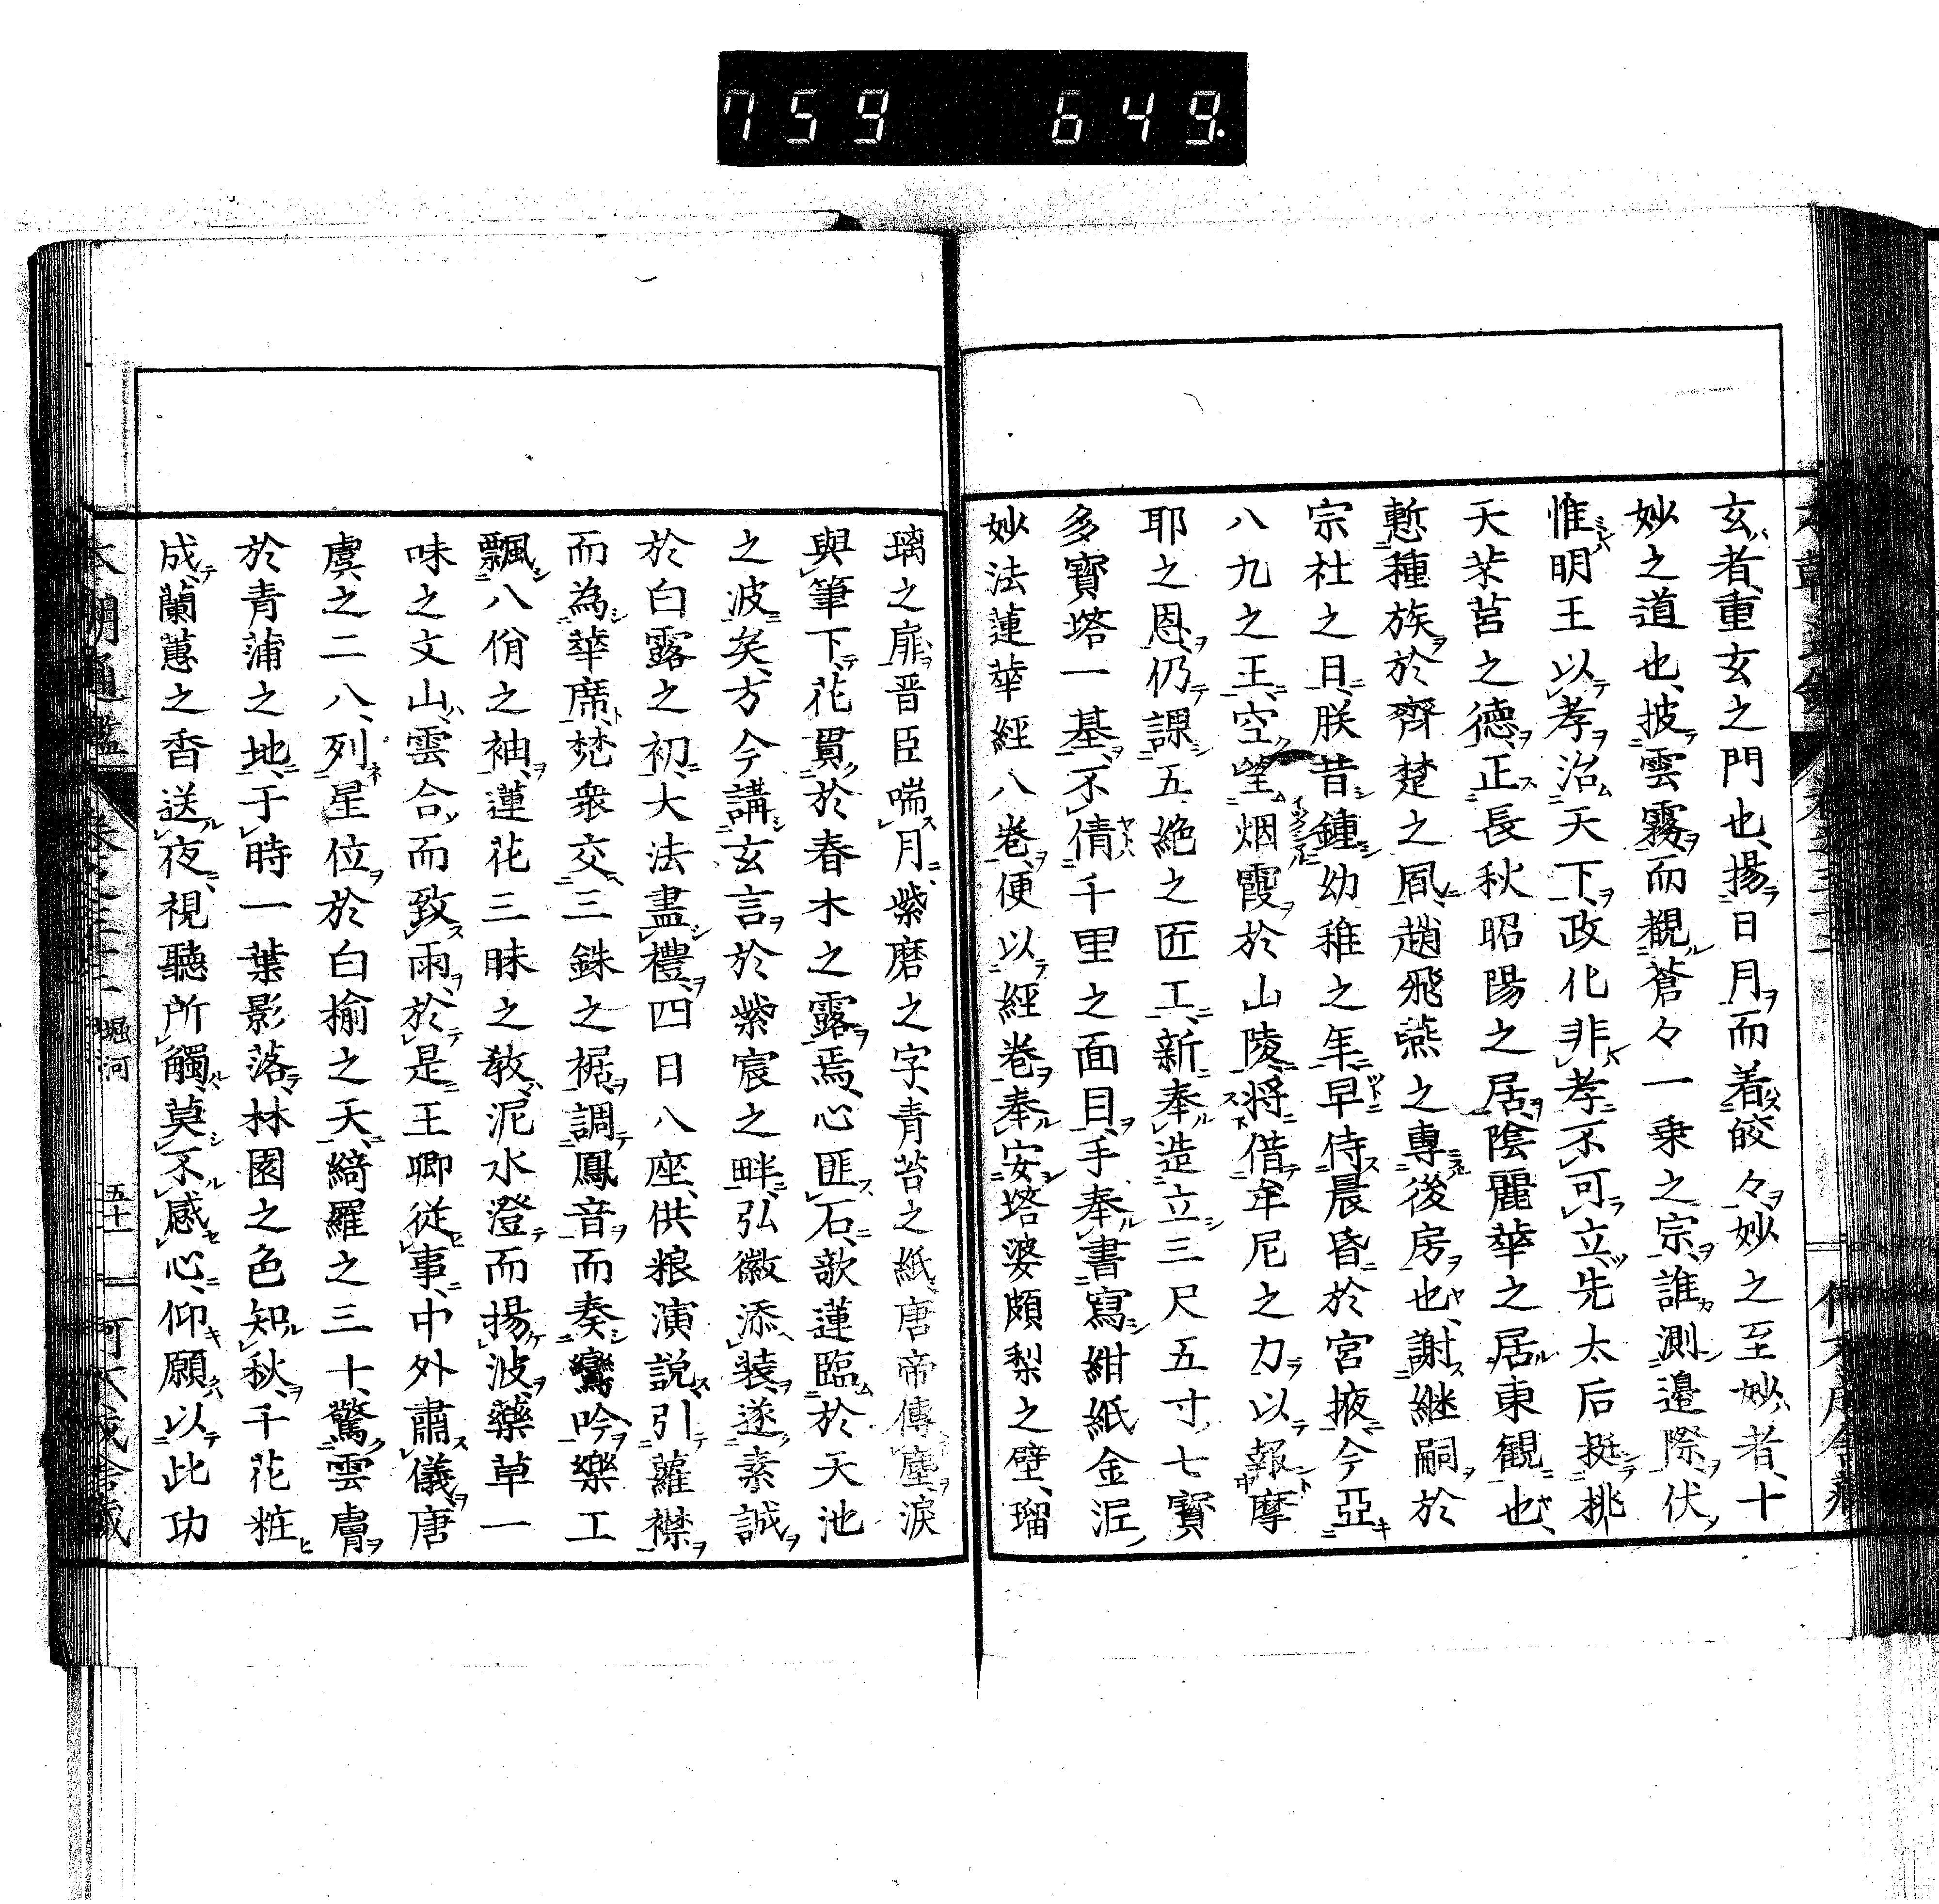 759 649.
玄者、重玄之門也、揚日月而着皎々妙之至妙者、十
妙之道也、披雲霧而觀蒼々一乗之宗、誰測邉際、伏
惟明王以孝治天下、政化非孝不可立、先太后挺挑
天苤苢之德、正長秋昭陽之居、陰麗華之居東観也、
慙種族於齊楚之風、趙飛燕之專後房也、謝継嗣於
宗社之日、朕昔鍾幼稚之年、早侍晨昏於宮掖、今亞
八九之王、空望烟霞於山陵、將借牟尼之力以報摩
耶之恩、仍課五絶之匠工、新奉造立三尺五寸七寳
多寳塔一基、不倩千里之面目、手奉書寫紺紙金泥
妙法蓮華經八卷、便以經卷奉安塔婆頗梨之壁、瑠
璃之扉、晋臣喘月、紫磨之字、青苔之紙、唐帝傳塵、淚
與筆下、花貫於春木之露焉、心匪石、歆蓮臨於天池
之波矣、方今講玄言於紫宸之畔、弘徽添装、遂素誠
於白露之初、大法盡禮、四日八座、供粮演說、引蘿襟
而為華席、梵衆交三銖之裾、調鳳音而奏鸞吟、樂工
飄八佾之袖、蓮花三昧之教、泥水澄而揚波、藥草一
味之文、山雲合而致雨、於是王卿従事、中外肅儀、唐
虞之二八、列星位於白榆之天、綺羅之三十、驚雲膚
於青蒲之地、于時一葉影落、林園之色知秋、千花粧
成、蘭蕙之香送夜、視聽所觸、莫不感心、仰願以此功
堀河 五十一